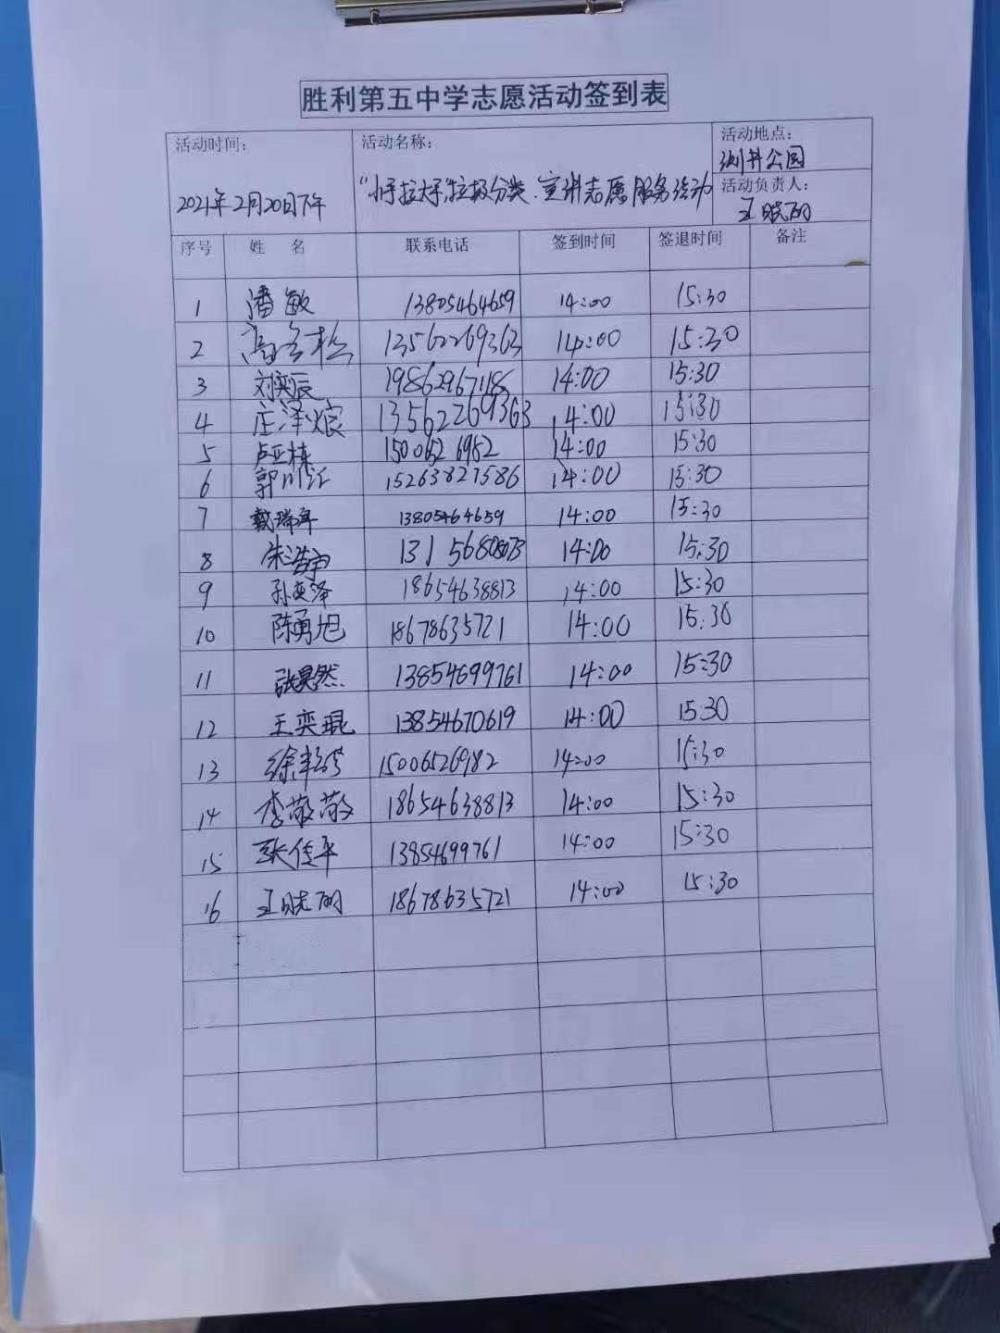 胜利第五中学志愿活动签到表
活动时间: 活动名称: 活动地点:
测井公园
2021年2月20日下午 "小手拉大手,垃圾分类"宣讲志愿服务活动 活动负责人:
王晓丽
序号 姓 名 联系电话 签到时间 签退时间 备注
1 潘敏 13805464659 14:00 15:30
2 13562269363 14:00 15:30
3 刘奕辰 19862967118 14:00 15:30
4 庄泽宸 13562269363 14:00 15:30
5 卢亚栋 150062 6982 14:00 15:30
6 郭川江 15263827586 14:00 15:30
7 戴瑞年 13805464659 14:00 15:30
8 朱浩宇 14:00 15:30
9 孙奕泽 18654638813 14:00 15:30
10 陈勇旭 18678635721 14:00 15:30
11 张昊然 13854699761 14:00 15:30
12 王奕琨 13854670619 14:00 15:30
13 15006526982 14:00 15:30
14 李敬敬 18654638813 14:00 15:30
15 张传平 13854699761 14:00 15:30
16 王晓丽 18678635721 14:00 15:30